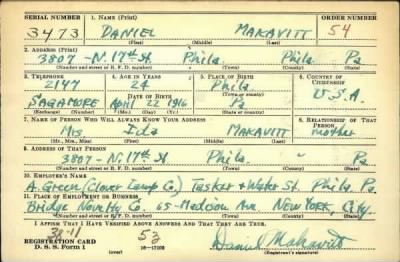 SERIAL NUMBER 1. NAME (Print) ORDER NUMBER
3473 DANIEL MAKAVITT 54
(First) (Middle) (Last)
2. ADDRESS (Print)
3807 - N. 17th St. Phila. Phila. Pa
(Number and street or R. F. D. number) (Town) (County) (State)
3. TELEPHONE 4. AGE IN YEARS 5. PLACE OF BIRTH 6. COUNTRY OF CITIZENSHIP
2147 24 Phila.
DATE OF BIRTH (Town or county) U.S.A.
SAGAMORE April 22 1916 Pa
(Exchange) (Number) (Mo.) (Day) (Yr.) (State or country)
7. NAME OF PERSON WHO WILL ALWAYS KNOW YOUR ADDRESS 8. RELATIONSHIP OF THAT PERSON
Mrs Ida MAKAVITT mother
(Mr., Mrs., Miss) (First) (Middle) (Last)
9. ADDRESS OF THAT PERSON
3807 - N. 17th St Phila. " Pa
(Number and street or R. F. D. number) (Town) (County) (State)
10. EMPLOYER'S NAME
A. Green (Clover Lamp Co.) Tasker + Water St. Phila. Pa.
11. PLACE OF EMPLOYMENT OR BUSINESS
Bridge Novelty Co. 65 - Madison Ave NEW YORK, City.
(Number and street or R. F. D. number) (Town) (County) (State)
I AFFIRM THAT I HAVE VERIFIED ABOVE ANSWERS AND THAT THEY ARE TRUE.
38-11 53
REGISTRATION CARD
D. S. S. Form 1 16-17105 Daniel Makavitt